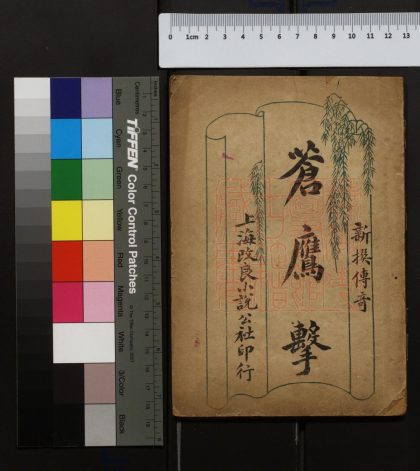 新撰傳奇
蒼鷹擊
上海改良小說公社印行
0 1cm 2 3 4 5 6 7 8 9 10 11 12 13
TIFFEN Color Control Patches
© The Tiffen Company, 2007
Centimetres
Inches
Blue
Cyan
Green
Yellow
Red
Magenta
White
3/Color
Black